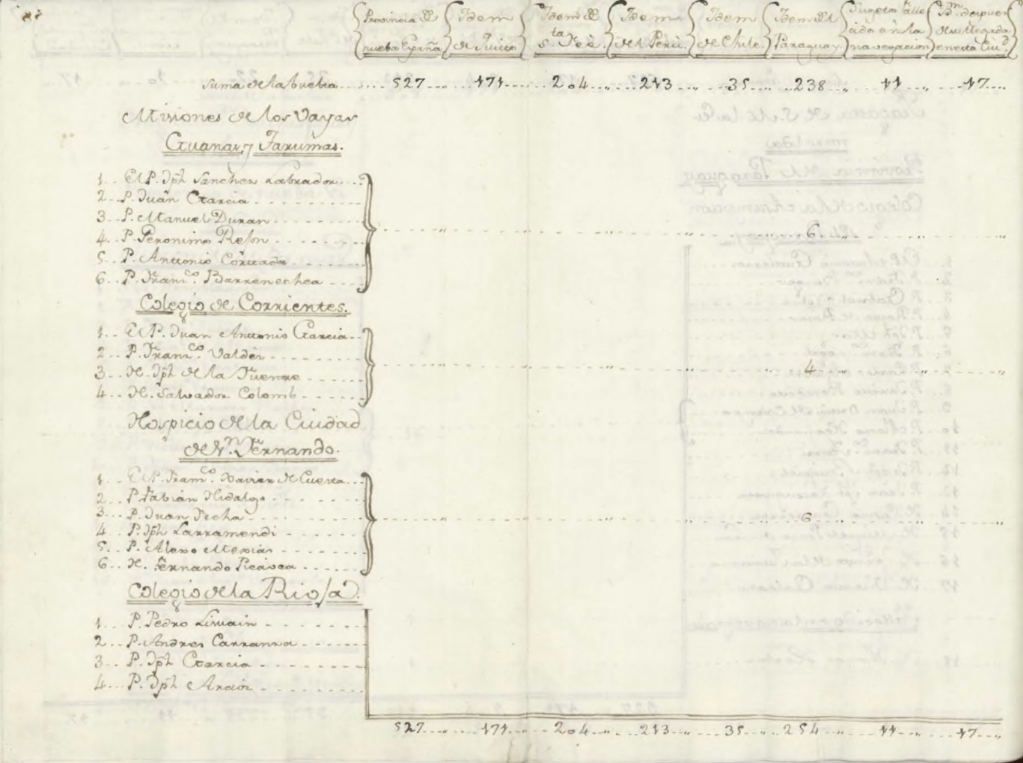 Provincia de nueba España
Idem de Quito
Idem de Sta. Fee
Idem del Perú
Idem de Chile
Idem del Paraguay
Sugetos falle cido en la navegacion
Idm. despues de su llegada en esta Ciud.
Suma de la buelta 527 171 204 213 35 238 11 17
Misiones de los Vayas
Guanas, y Tarumas.
1 El P. Jph Sanchez Labrador
2 P. Juan Garcia
3 P. Manuel Duran
4 P. Geronimo Rejon
5 P. Antonio Cortada
6 P. Franco. Barrenechea
6
Colegio de Corrientes.
1 El P. Juan Antonio Garcia
2 P. Franco. Valdes
3 H. Jph de la Fuente
4 H. Salvador Colomb
4
Hospicio de la Ciudad
de Sn. Fernando.
1 El P. Franco. Xavier de Cuesta
2 P. Fabian Hidalgo
3 P. Juan Fecha
4 P. Jph Larramendi
5 P. Alexo Mexias
6 H. Fernando Picasea
6
Colegio de la Rioja
1 P. Pedro Liniain
2 P. Andres Carranza
3 P. Jph Garcia
4 P. Jph Araoz
527 171 204 213 35 254 11 17